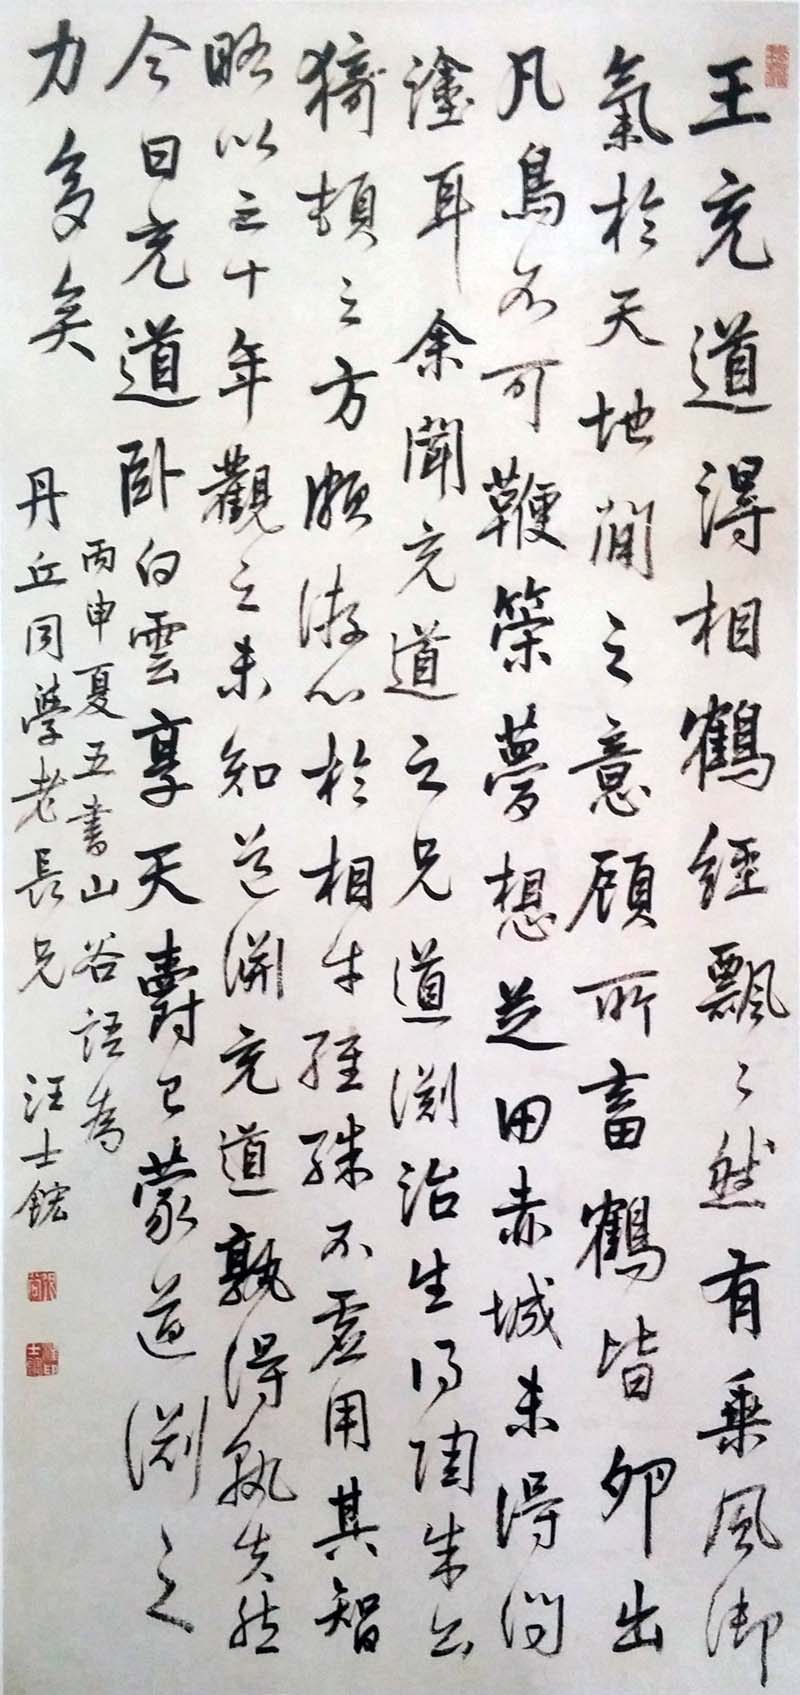 王充道得相鶴經飄〻然有乗風御
氣於天地間之意顧所畜鶴皆卵出
凡鳥不可鞭箠夢想芝田赤城未得問
塗耳余聞充道之兄道渊治生得陶朱公
猗頓之方頗游心於相牛經殊不虛用其智
略以三十年觀之未知道渊充道孰得孰失然
今日充道卧白雲享天爵已蒙道渊之
力多矣
丙申夏五書山谷語為
丹丘同學老長兄 汪士鋐